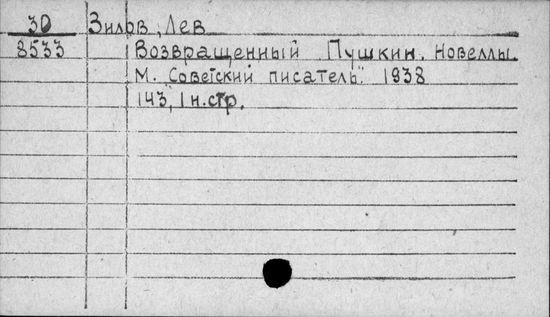 30 Зилов, Лев
8533 Возвращенный Пушкин. Новеллы.
М. "Советский писатель" 1938
143, 1 н.стр.